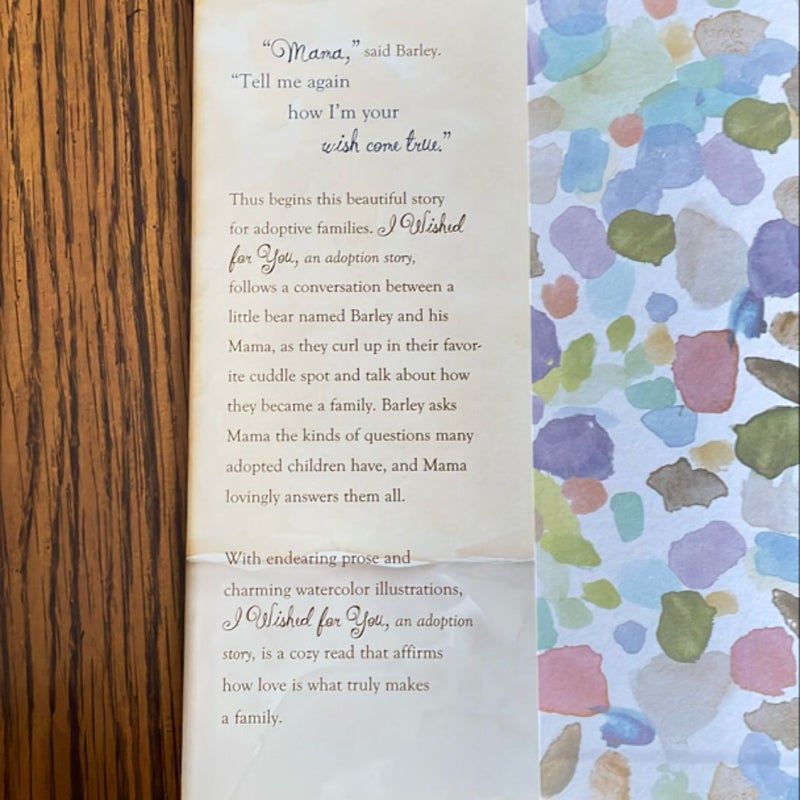 “Mama,” said Barley.
“Tell me again
how I’m your
wish come true.”
Thus begins this beautiful story
for adoptive families. I Wished
for You, an adoption story,
follows a conversation between a
little bear named Barley and his
Mama, as they curl up in their favor-
ite cuddle spot and talk about how
they became a family. Barley asks
Mama the kinds of questions many
adopted children have, and Mama
lovingly answers them all.
With endearing prose and
charming watercolor illustrations,
I Wished for You, an adoption
story, is a cozy read that affirms
how love is what truly makes
a family.